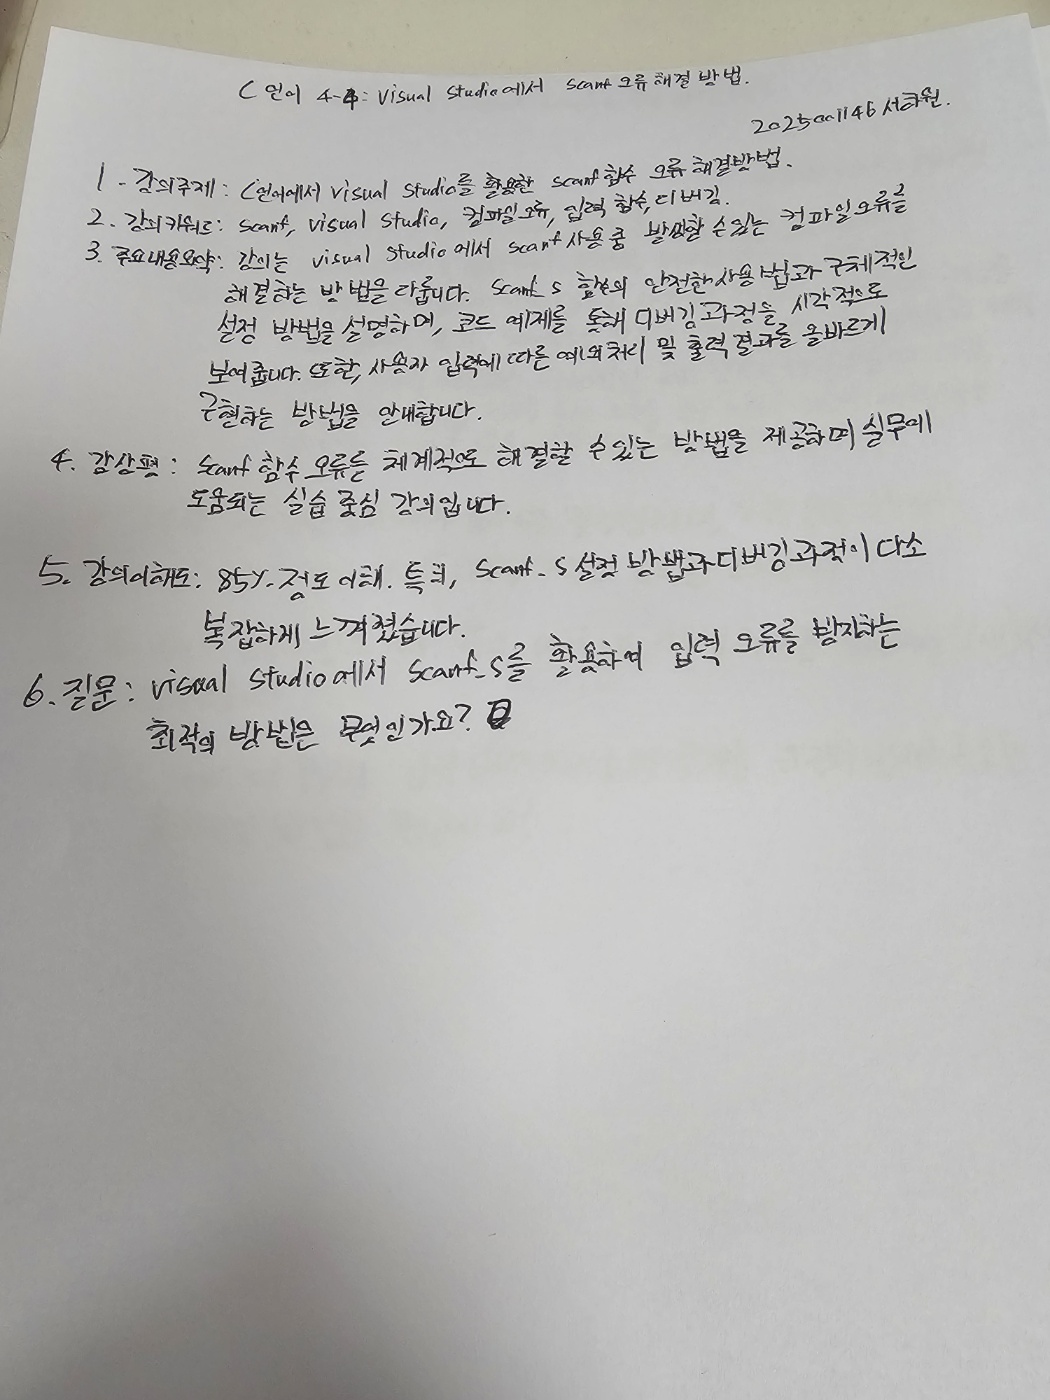 C 언어 4-4: Visual Studio에서 scanf 오류 해결 방법.
2025001146 서하원.
1. 강의주제: C언어에서 Visual Studio를 활용한 scanf 함수 오류 해결방법.
2. 강의키워드: scanf, Visual Studio, 컴파일 오류, 입력 함수, 디버깅.
3. 주요내용요약: 강의는 Visual Studio에서 scanf 사용 중 발생할 수 있는 컴파일 오류를
해결하는 방법을 다룹니다. scanf_s 함수의 안전한 사용법과 구체적인
설정 방법을 설명하며, 코드 예제를 통해 디버깅 과정을 시각적으로
보여줍니다. 또한, 사용자 입력에 따른 예외처리 및 출력 결과를 올바르게
구현하는 방법을 안내합니다.
4. 감상평: scanf 함수 오류를 체계적으로 해결할 수 있는 방법을 제공하며 실무에
도움되는 실습 중심 강의입니다.
5. 강의이해도: 85% 정도 이해. 특히, scanf_s 설정 방법과 디버깅 과정이 다소
복잡하게 느껴졌습니다.
6. 질문: Visual Studio에서 scanf_s를 활용하여 입력 오류를 방지하는
최적의 방법은 무엇인가요?